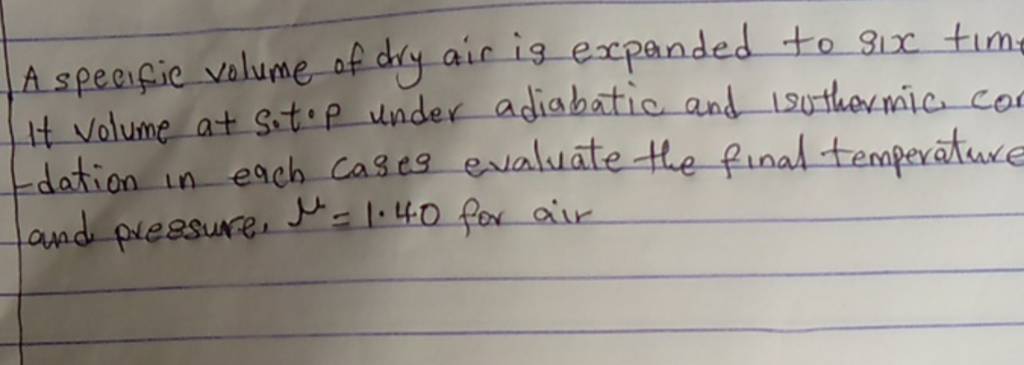 A specific volume of dry air is expanded to six time
It volume at s.t.p under adiabatic and isothermic con
-dation in each cases evaluate the final temperature
and pressure, μ = 1.40 for air